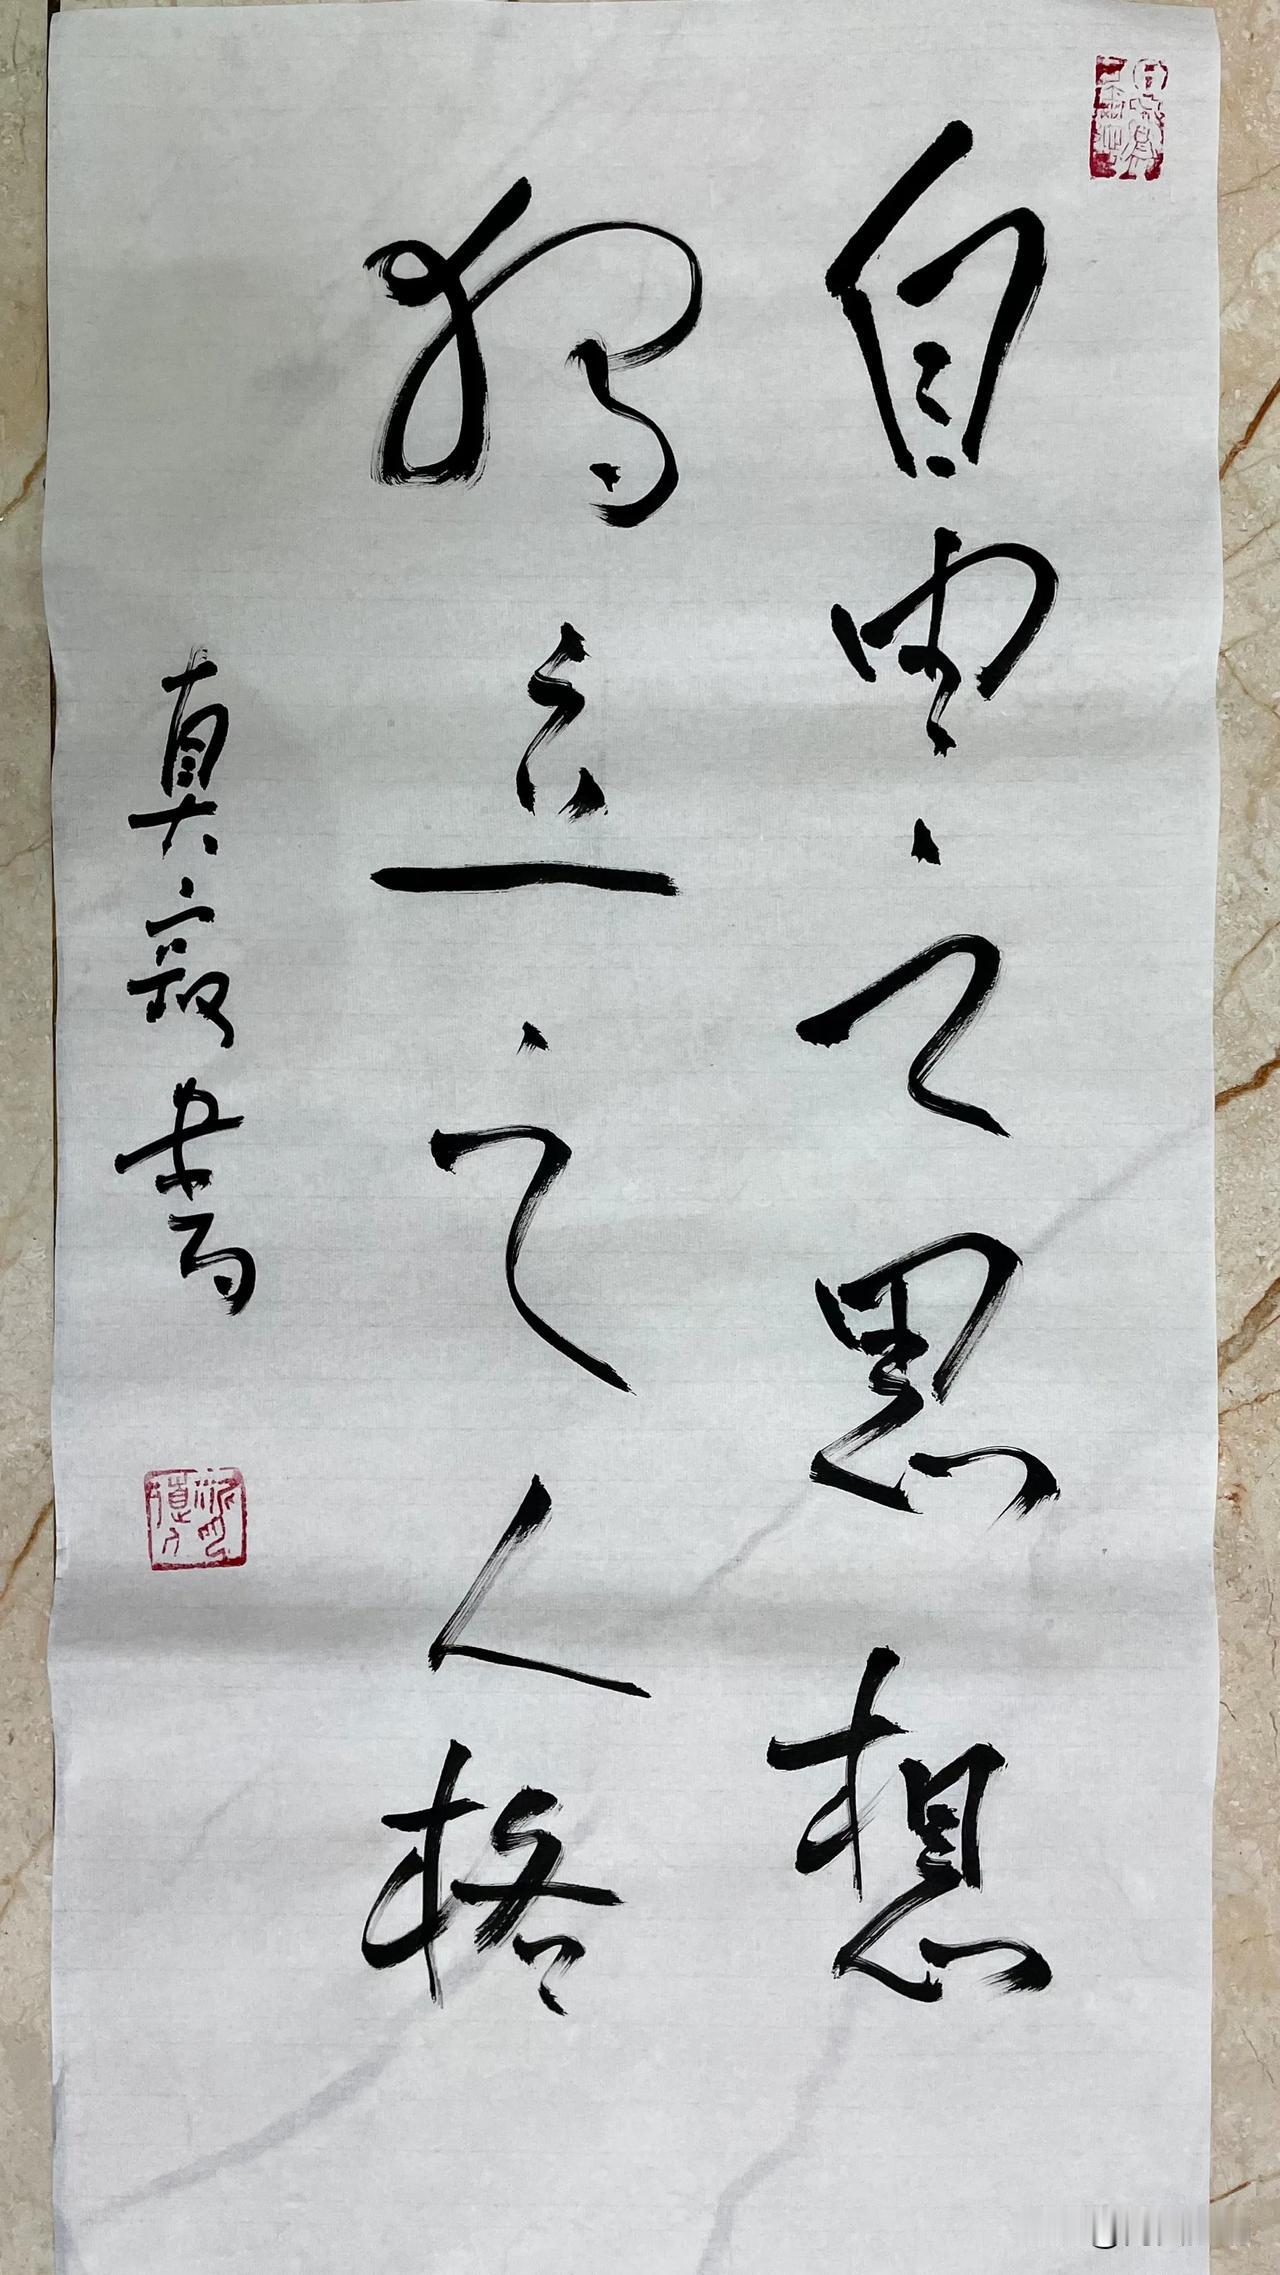 自由之思想
獨立之人格
真寂書